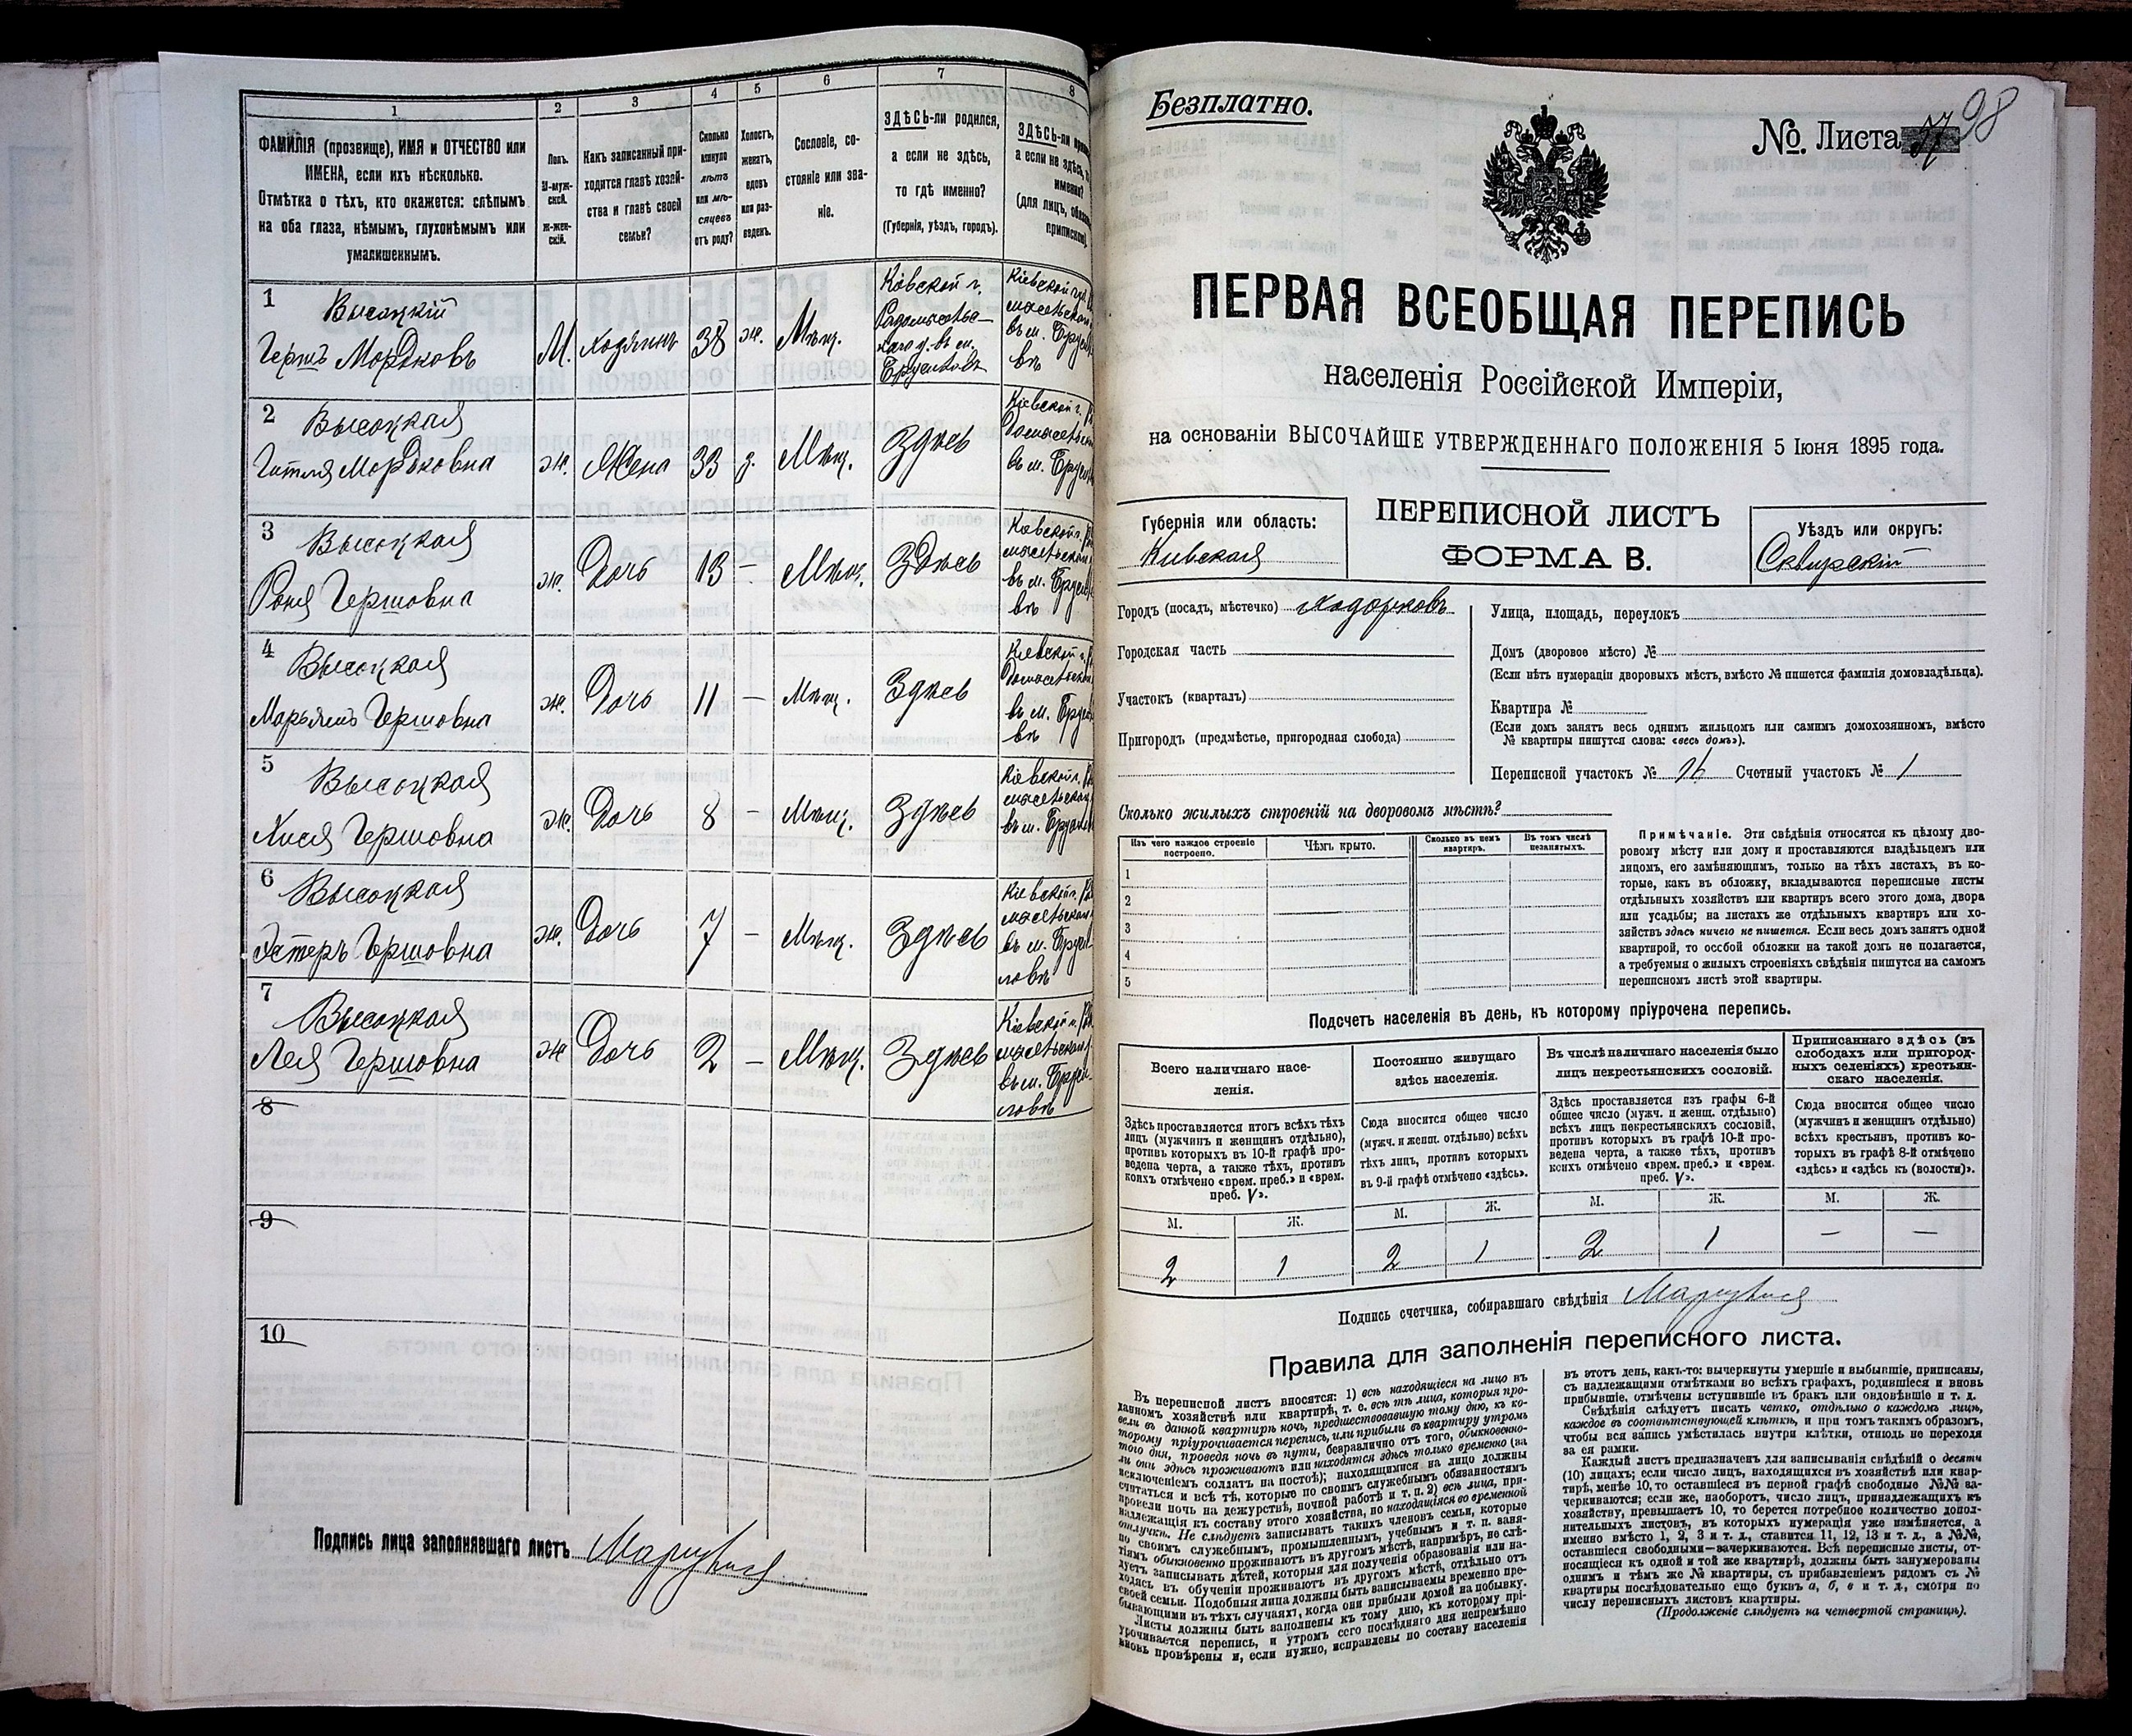 1
2
3
4
5
6
7
8
ФАМИЛІЯ (прозвище), ИМЯ и ОТЧЕСТВО или
ИМЕНА, если ихъ нѣсколько.
Отмѣтка о тѣхъ, кто окажется: слѣпымъ
на оба глаза, нѣмымъ, глухонѣмымъ или
умалишеннымъ.
Полъ.
М-муж-
ской.
ж-жен-
скій.
Какъ записанный при-
ходится главѣ хозяй-
ства и главѣ своей
семьи?
Сколько
минуло
лѣтъ
или мѣ-
сяцевъ
отъ роду?
Холостъ,
женатъ,
вдовъ
или раз-
веденъ.
Сословіе, со-
стояніе или зва-
ніе.
ЗДѢСЬ-ли родился,
а если не здѣсь,
то гдѣ именно?
(Губернія, уѣздъ, городъ).
ЗДѢСЬ-ли
а если не здѣсь,
именно?
(для лицъ,
1 Высоцкій
Гершъ Мордковъ
М.
хозяинъ
38
ж.
Мѣщ.
Кіевской г.
Радомысльс-
каго у. въ м.
Брусиловѣ
Кіевской
въ м.
вѣ
2 Высоцкая
Гитля Мордковна
ж.
Жена
33
з.
Мѣщ.
Здѣсь
Кіевской г.
въ м.
3 Высоцкая
Роня Гершовна
ж.
Дочь
13
-
Мѣщ.
Здѣсь
Кіевской г.
въ м.
вѣ
4 Высоцкая
Марьямъ Гершовна
ж.
Дочь
11
-
Мѣщ.
Здѣсь
Кіевской г.
въ м.
вѣ
5 Высоцкая
Хися Гершовна
ж.
Дочь
8
-
Мѣщ.
Здѣсь
Кіевской г.
въ м.
6 Высоцкая
Эстеръ Гершовна
ж.
Дочь
7
-
Мѣщ.
Здѣсь
Кіевской г.
въ м.
ловѣ
7 Высоцкая
Лея Гершовна
ж
Дочь
2
-
Мѣщ.
Здѣсь
Кіевской г.
въ м.
ловѣ
8
9
10
Подпись лица заполнявшаго листъ
Безплатно.
№. Листа 37 98
ПЕРВАЯ ВСЕОБЩАЯ ПЕРЕПИСЬ
населенія Россійской Имперіи,
на основаніи ВЫСОЧАЙШЕ УТВЕРЖДЕННАГО ПОЛОЖЕНІЯ 5 Іюня 1895 года.
Губернія или область:
Кіевская
ПЕРЕПИСНОЙ ЛИСТЪ
ФОРМА В.
Уѣздъ или округъ:
Сквирскій
Городъ (посадъ, мѣстечко) Ходорковъ
Городская часть
Участокъ (кварталъ)
Пригородъ (предмѣстье, пригородная слобода)
Улица, площадь, переулокъ
Домъ (дворовое мѣсто) №
(Если нѣтъ нумераціи дворовыхъ мѣстъ, вмѣсто № пишется фамилія домовладѣльца).
Квартира №
(Если домъ занятъ весь однимъ жильцомъ или самимъ домохозяиномъ, вмѣсто
№ квартиры пишутся слова: «весь домъ»).
Переписной участокъ № 16 Счетный участокъ № 1
Сколько жилыхъ строеній на дворовомъ мѣстѣ?
Изъ чего каждое строеніе
построено.
Чѣмъ крыто.
Сколько въ немъ
квартиръ.
Въ томъ числѣ
незанятыхъ.
1
2
3
4
5
Примѣчаніе. Эти свѣдѣнія относятся къ цѣлому дво-
ровому мѣсту или дому и проставляются владѣльцемъ или
лицомъ, его замѣняющимъ, только на тѣхъ листахъ, въ ко-
торые, какъ въ обложку, вкладываются переписные листы
отдѣльныхъ хозяйствъ или квартиръ всего этого дома, двора
или усадьбы; на листахъ же отдѣльныхъ квартиръ или хо-
зяйствъ здѣсь ничего не пишется. Если весь домъ занятъ одной
квартирой, то особой обложки на такой домъ не полагается,
а требуемыя о жилыхъ строеніяхъ свѣдѣнія пишутся на самомъ
переписномъ листѣ этой квартиры.
Подсчетъ населенія въ день, къ которому пріурочена перепись.
Всего наличнаго насе-
ленія.
Здѣсь проставляется итогъ всѣхъ тѣхъ
лицъ (мужчинъ и женщинъ отдѣльно),
противъ которыхъ въ 10-й графѣ про-
ведена черта, а также тѣхъ, противъ
коихъ отмѣчено «врем. преб.» и «врем.
преб. V».
Постоянно живущаго
здѣсь населенія.
Сюда вносится общее число
(мужч. и женщ. отдѣльно) всѣхъ
тѣхъ лицъ, противъ которыхъ
въ 9-й графѣ отмѣчено «здѣсь».
Въ числѣ наличнаго населенія было
лицъ некрестьянскихъ сословій.
Здѣсь проставляется изъ графы 6-й
общее число (мужч. и женщ. отдѣльно)
всѣхъ лицъ некрестьянскихъ сословій,
противъ которыхъ въ графѣ 10-й про-
ведена черта, а также тѣхъ, противъ
коихъ отмѣчено «врем. преб.» и «врем.
преб. V».
Приписаннаго здѣсь (въ
слободахъ или пригород-
ныхъ селеніяхъ) крестьян-
скаго населенія.
Сюда вносится общее число
(мужчинъ и женщинъ отдѣльно)
всѣхъ крестьянъ, противъ ко-
торыхъ въ графѣ 8-й отмѣчено
«здѣсь» и «здѣсь къ (волости)».
М. Ж. М. Ж. М. Ж. М. Ж.
2 1 2 1 2 1 — —
Подпись счетчика, собиравшаго свѣдѣнія
Правила для заполненія переписного листа.
Въ переписной листъ вносятся: 1) всѣ находящіеся на лицо въ
данномъ хозяйствѣ или квартирѣ, т. е. всѣ тѣ лица, которыя про-
вели въ данной квартирѣ ночь, предшествовавшую тому дню, къ ко-
торому пріурочивается перепись, или прибыли въ квартиру утромъ
того дня, проведя ночь въ пути, безразлично отъ того, обыкновенно-
ли они здѣсь проживаютъ или находятся здѣсь только временно (за
исключеніемъ солдатъ на постоѣ); находящимися на лицо должны
считаться и всѣ тѣ, которые по своимъ служебнымъ обязанностямъ
провели ночь на дежурствѣ, ночной работѣ и т. п. 2) всѣ лица, при-
надлежащія къ составу этого хозяйства, но находящіяся во временной
отлучкѣ. Не слѣдуетъ записывать такихъ членовъ семьи, которые
по своимъ служебнымъ, промышленнымъ, учебнымъ и т. п. заня-
тіямъ обыкновенно проживаютъ въ другомъ мѣстѣ, напримѣръ, не слѣ-
дуетъ записывать дѣтей, которыя для полученія образованія или на-
ходясь въ обученіи проживаютъ въ другомъ мѣстѣ, отдѣльно отъ
своей семьи. Подобныя лица должны быть записываемы временно пре-
бывающими въ тѣхъ случаяхъ, когда они прибыли домой на побывку.
Листы должны быть заполнены къ тому дню, къ которому прі-
урочивается перепись, и утромъ сего послѣдняго дня непремѣнно
вновь провѣрены и, если нужно, исправлены по составу населенія
въ этотъ день, какъ-то: вычеркнуты умершіе и выбывшіе, приписаны,
съ надлежащими отмѣтками во всѣхъ графахъ, родившіеся и вновь
прибывшіе, отмѣчены вступившіе въ бракъ или овдовѣвшіе и т. д.
Свѣдѣнія слѣдуетъ писать четко, отдѣльно о каждомъ лицѣ,
каждое въ соотвѣтствующей клѣткѣ, и при томъ такимъ образомъ,
чтобы вся запись умѣстилась внутри клѣтки, отнюдь не переходя
за ея рамки.
Каждый листъ предназначенъ для записыванія свѣдѣній о десяти
(10) лицахъ; если число лицъ, находящихся въ хозяйствѣ или квар-
тирѣ, менѣе 10, то оставшіеся въ первой графѣ свободные №№ за-
черкиваются; если же, наоборотъ, число лицъ, принадлежащихъ къ
хозяйству, превышаетъ 10, то берется потребное количество допол-
нительныхъ листовъ, въ которыхъ нумерація уже измѣняется, а
именно вмѣсто 1, 2, 3 и т. д., ставится 11, 12, 13 и т. д., а №№,
оставшіеся свободными—зачеркиваются. Всѣ переписные листы, от-
носящіеся къ одной и той же квартирѣ, должны быть занумерованы
однимъ и тѣмъ же № квартиры, съ прибавленіемъ рядомъ съ №
квартиры послѣдовательно еще буквъ а, б, в и т. д., смотря по
числу переписныхъ листовъ квартиры.
(Продолженіе слѣдуетъ на четвертой страницѣ).